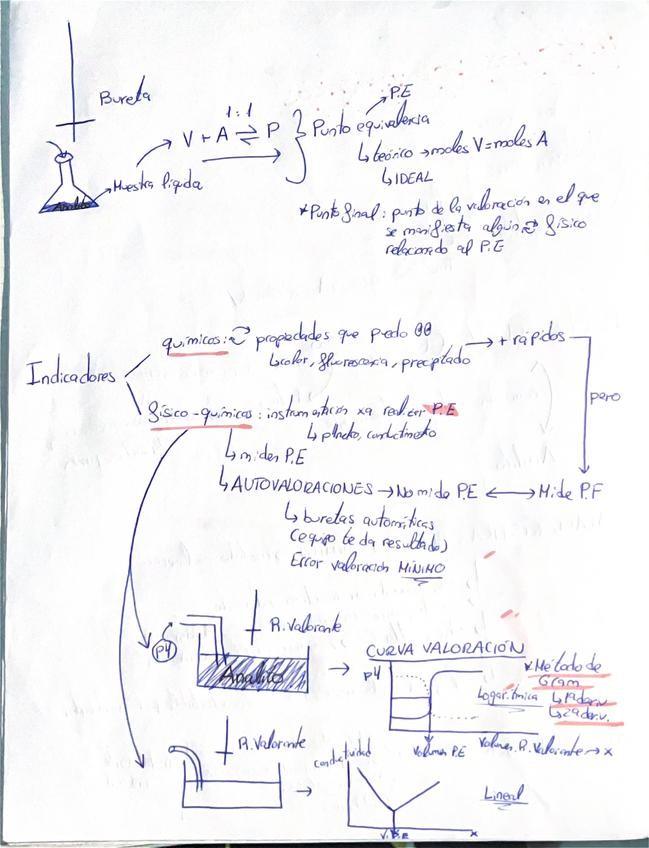 Bureta
P.E
1:1
V + A ⇌ P } Punto equivalencia
↳ teórico → moles V = moles A
↳ IDEAL
Muestra líquida
Analito
* Punto final: punto de la valoración en el que
se manifiesta algún físico
relacionado al P.E
químicos: propiedades que puedo
→ + rápidos
↳ color, fluorescencia, precipitado
Indicadores
pero
físico-químicos: instrumentación xa realizar P.E
↳ phmetro, conductimetro
↳ miden P.E
↳ AUTOVALORACIONES → No mide P.E ↔ Mide P.F
↳ buretas automáticas
(equipo te da resultado)
Error valoración MÍNIMO
R. Valorante
pH
Analito
CURVA VALORACIÓN
pH
* Método de
Gram
Logarítmica ↳ 1ª deriv.
↳ 2ª deriv.
Volumen P.E
Volumen R. Valorante → x
R. Valorante
conductividad
Lineal
V. P.E
x